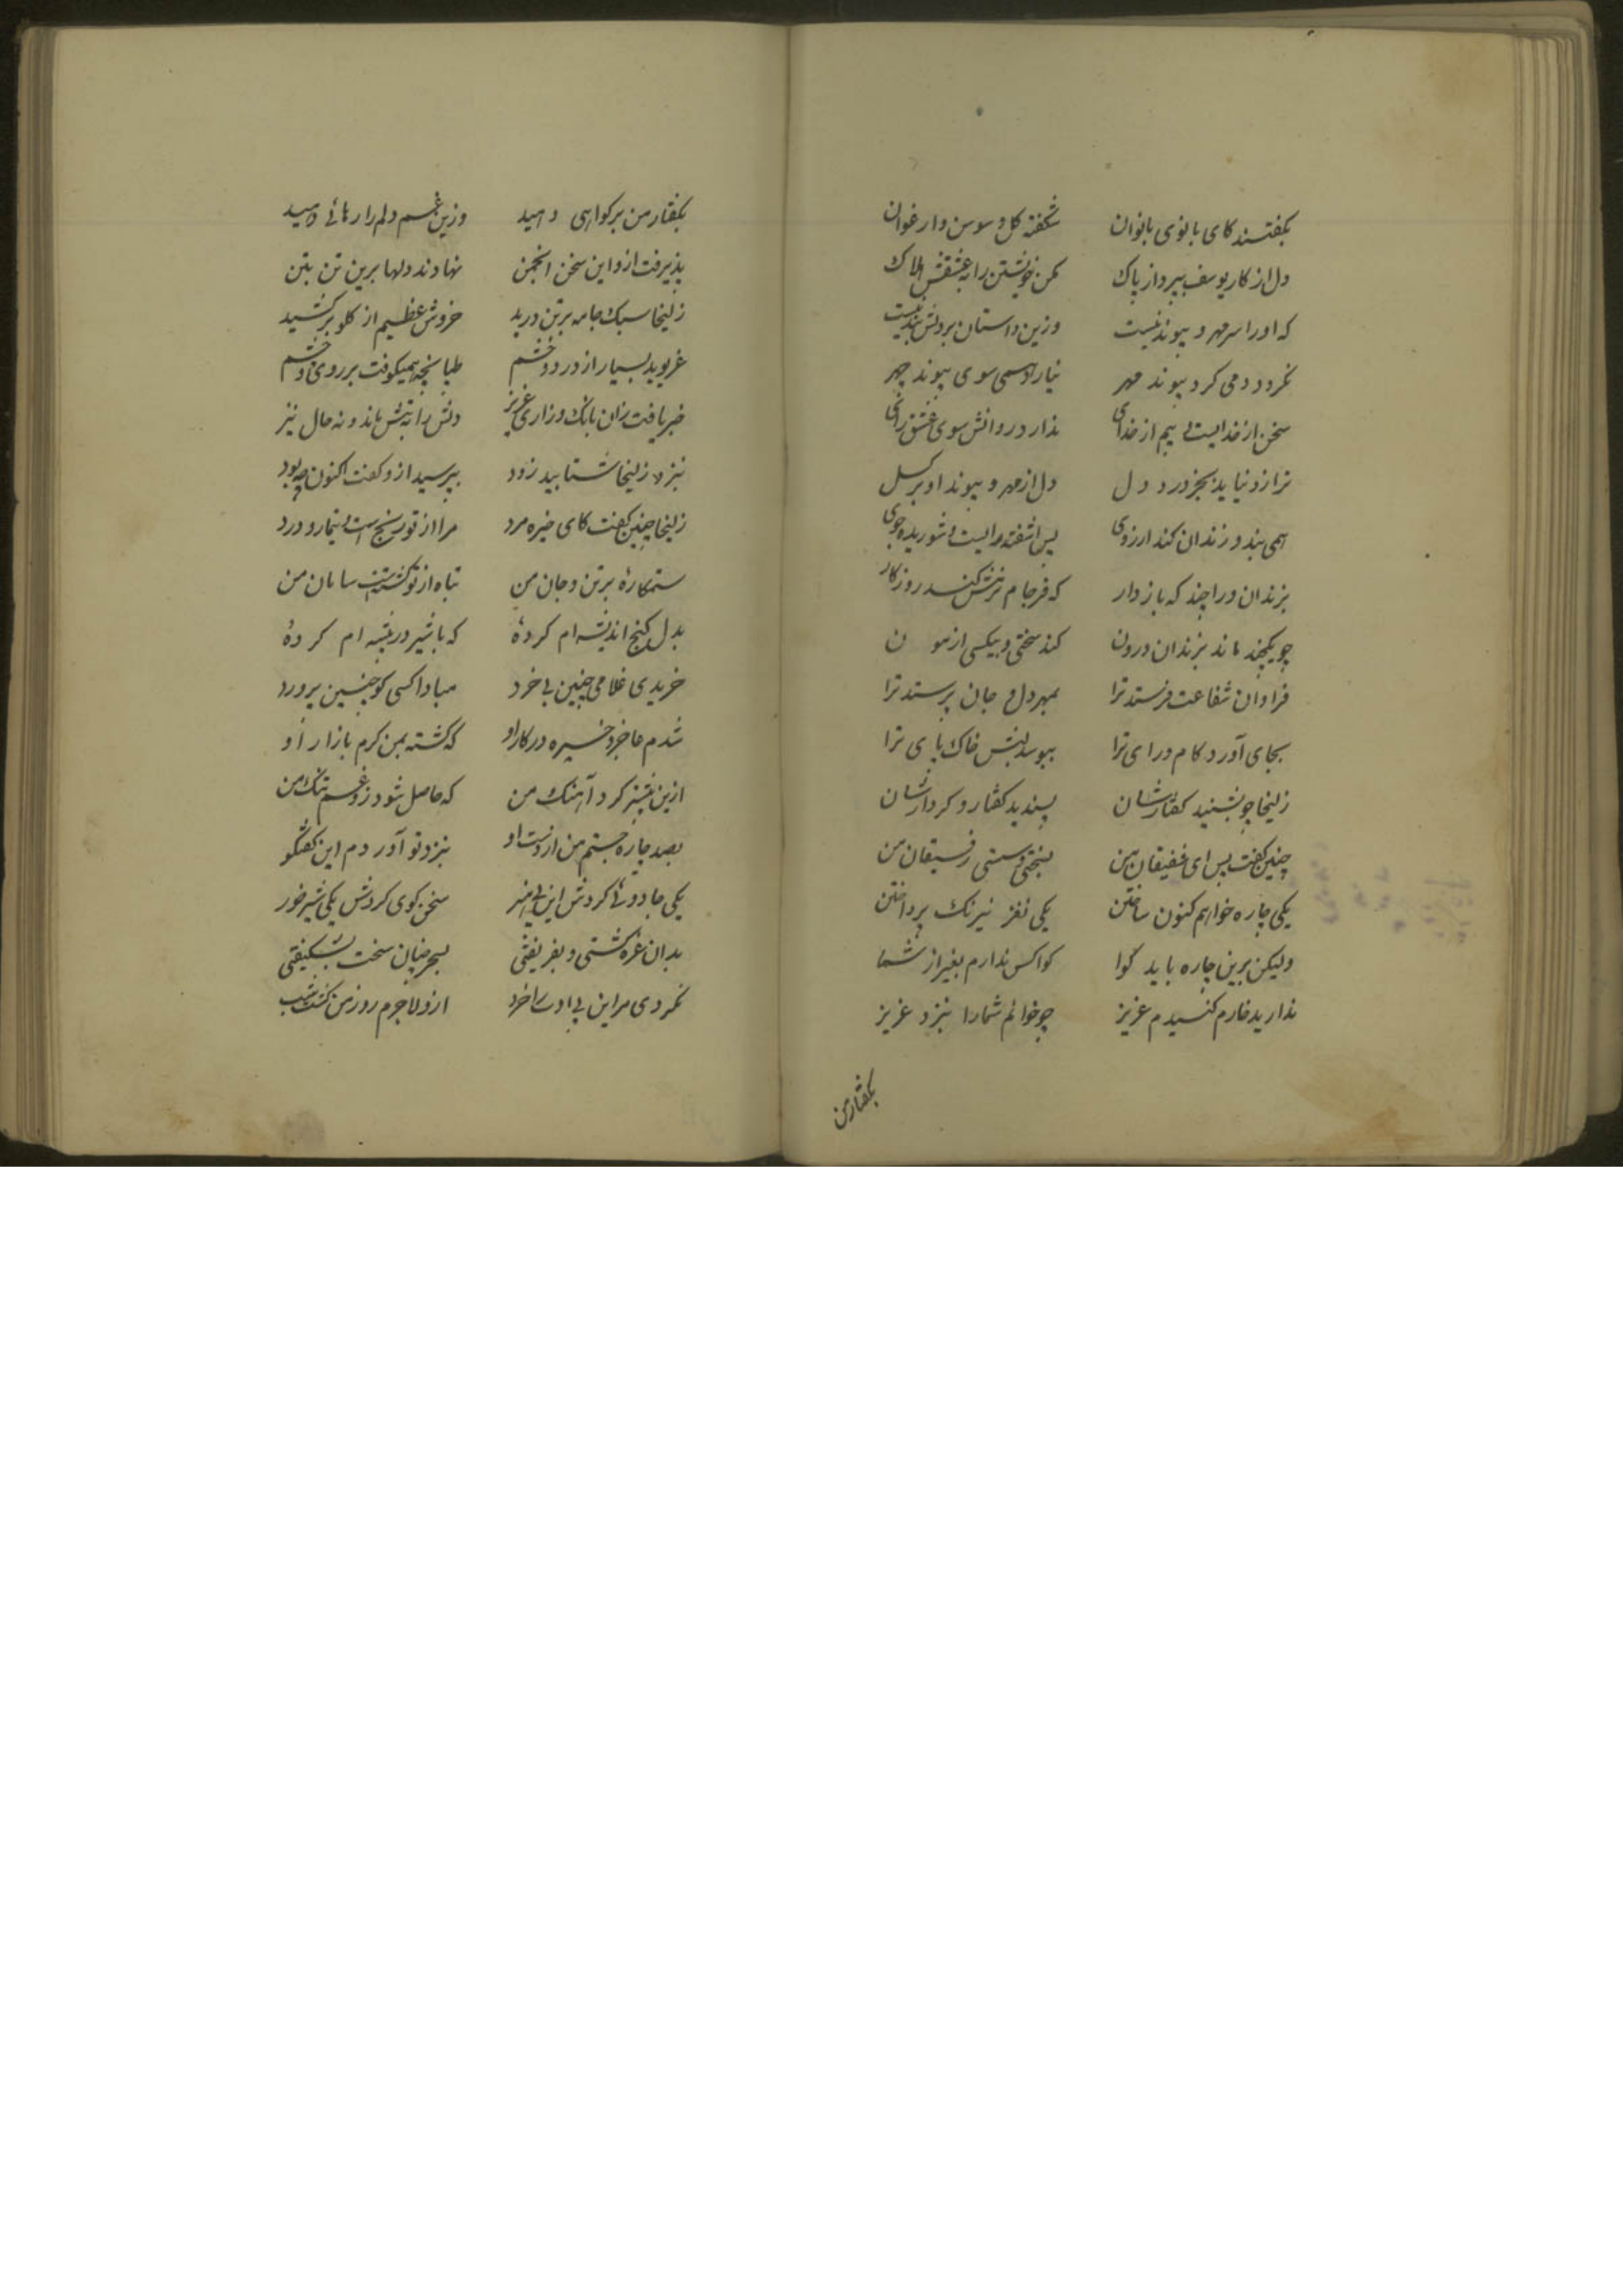 بگفتند کای بانوی بانوان شکفته گل و سوسن و ارغوان
دل از کار یوسف بپرداز پاک مکن خویشتن را به عشقش هلاک
که او را سر مهر و پیوند نیست وزین داستان بر دلش بند نیست
نگردد دمی کرد پیوند مهر نیارد همی سوی پیوند چهر
سخن از خدایست و بیم از خدای ندارد روانش سوی عشق رای
ترا زو نیاید بجز درد دل دل از مهر و پیوند او برگسل
همی بند و زندان کند آرزوی پس آشفته رایست و شوریده خوی
بزندان ورا چند که باز دار که فرجام نرمش کند روزگار
چو یکچند ماند بزندان درون کند سختی و بیکسی از
فراوان شفاعت فرستد ترا بمهر دل و جان پرستد ترا
بجای آورد کام و رای ترا ببوسد لبش خاک پای ترا
زلیخا چو بشنید گفتارشان پسندید گفتار و کردارشان
چنین گفت پس ای شفیقان من بسختی و سستی رفیقان من
یکی چاره خواهم کنون ساختن یکی نغز نیرنگ پرداختن
ولیکن برین چاره باید گوا گوا کس ندارم بغیر از شما
ندارید خوارم کنیدم عزیز چو خوانم شما را بنزد عزیز
بگفتار من
بگفتار من بر گواهی دهید وزین غم دلم را رهائی دهید
پذیرفت ازو این سخن انجمن نهادند دلها برین تن بتن
زلیخا سبک جامه بر تن درید خروش عظیم از گلو برکشید
غریوید بسیار از درد و خشم طبانچه همیکوفت بر روی و چشم
خبر یافت زان بانگ و زاری عزیز دلش را نه تش ماند و نه حال نیز
بنزد زلیخا شتابید زود بپرسید ازو گفت اکنون چه بود
زلیخا چنین گفت کای خیره مرد مرا از تو رنج است و تیمار و درد
ستمکارهٔ بر تن و جان من تباه از تو گشتست سامان من
بدل گنج اندیشه ام کردهٔ که با شیر در بیشه ام کردهٔ
خریدی غلامی چنین بی خرد مبادا کسی کو چنین پرورد
شدم عاجز و خیره در کار او که گشته بمن گرم بازار او
ازین پیشتر کرد آهنگ من که حاصل شود زو غم ننگ من
بصد چاره جستم من از دست او بنزد تو آوردم این گفتگو
یکی جادوئی کردش این بی هنر سخن گوی کردش یکی شیرخور
بدان غره گشتی و بفریفتی بسحر چنان سخت بشکیفتی
نکردی مر این بی ادب را خرد ازو لاجرم روز من گشت شب